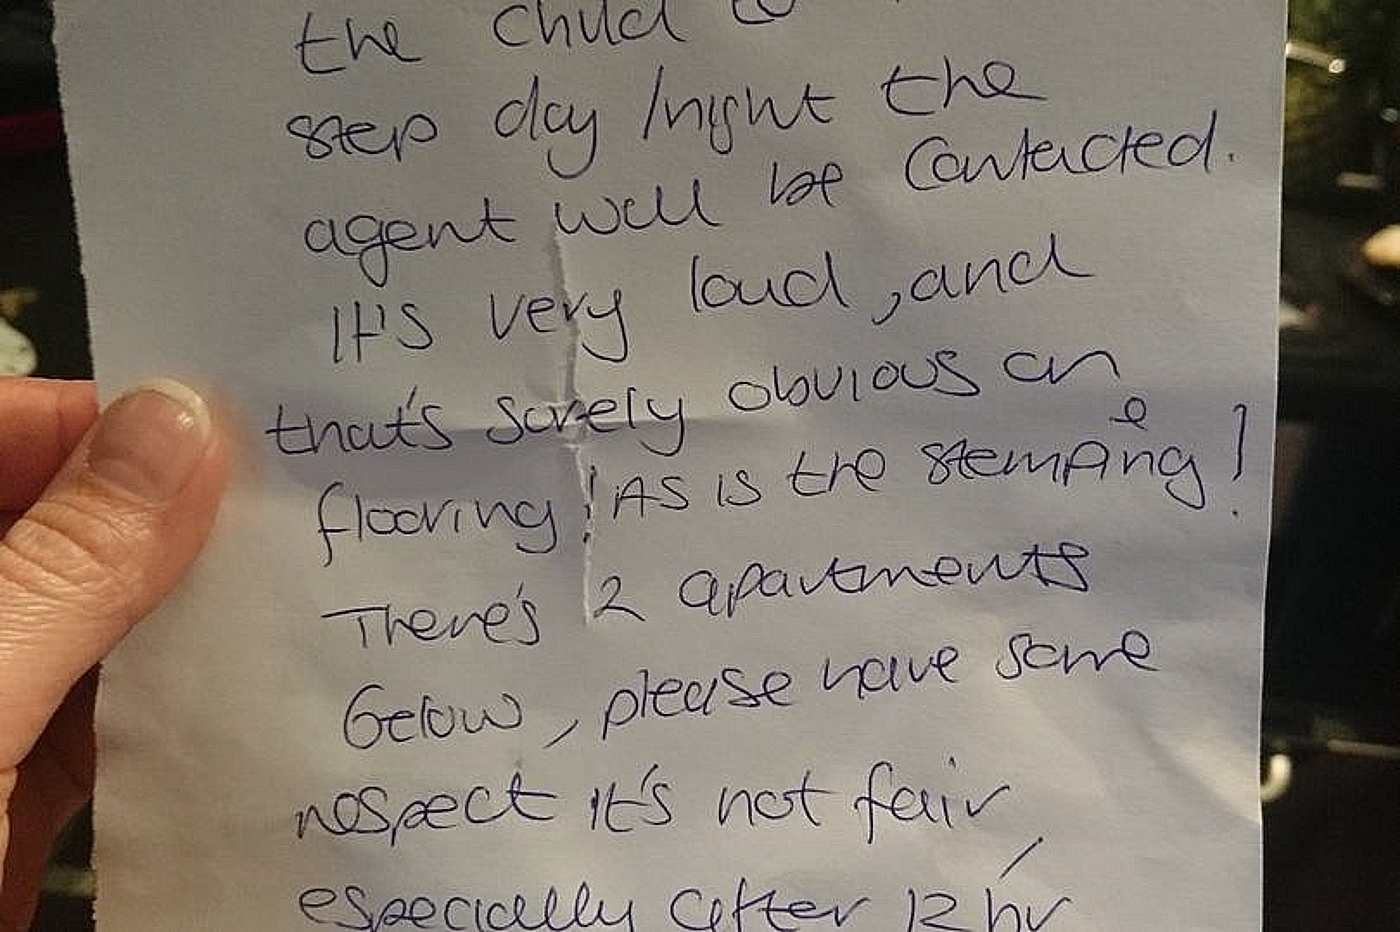 the child to
step day/night the
agent will be contacted.
It's very loud, and
that's surely obvious on
flooring! AS is the stemping!
There's 2 apartments
Below, please have some
respect it's not fair,
especially after 12 hr